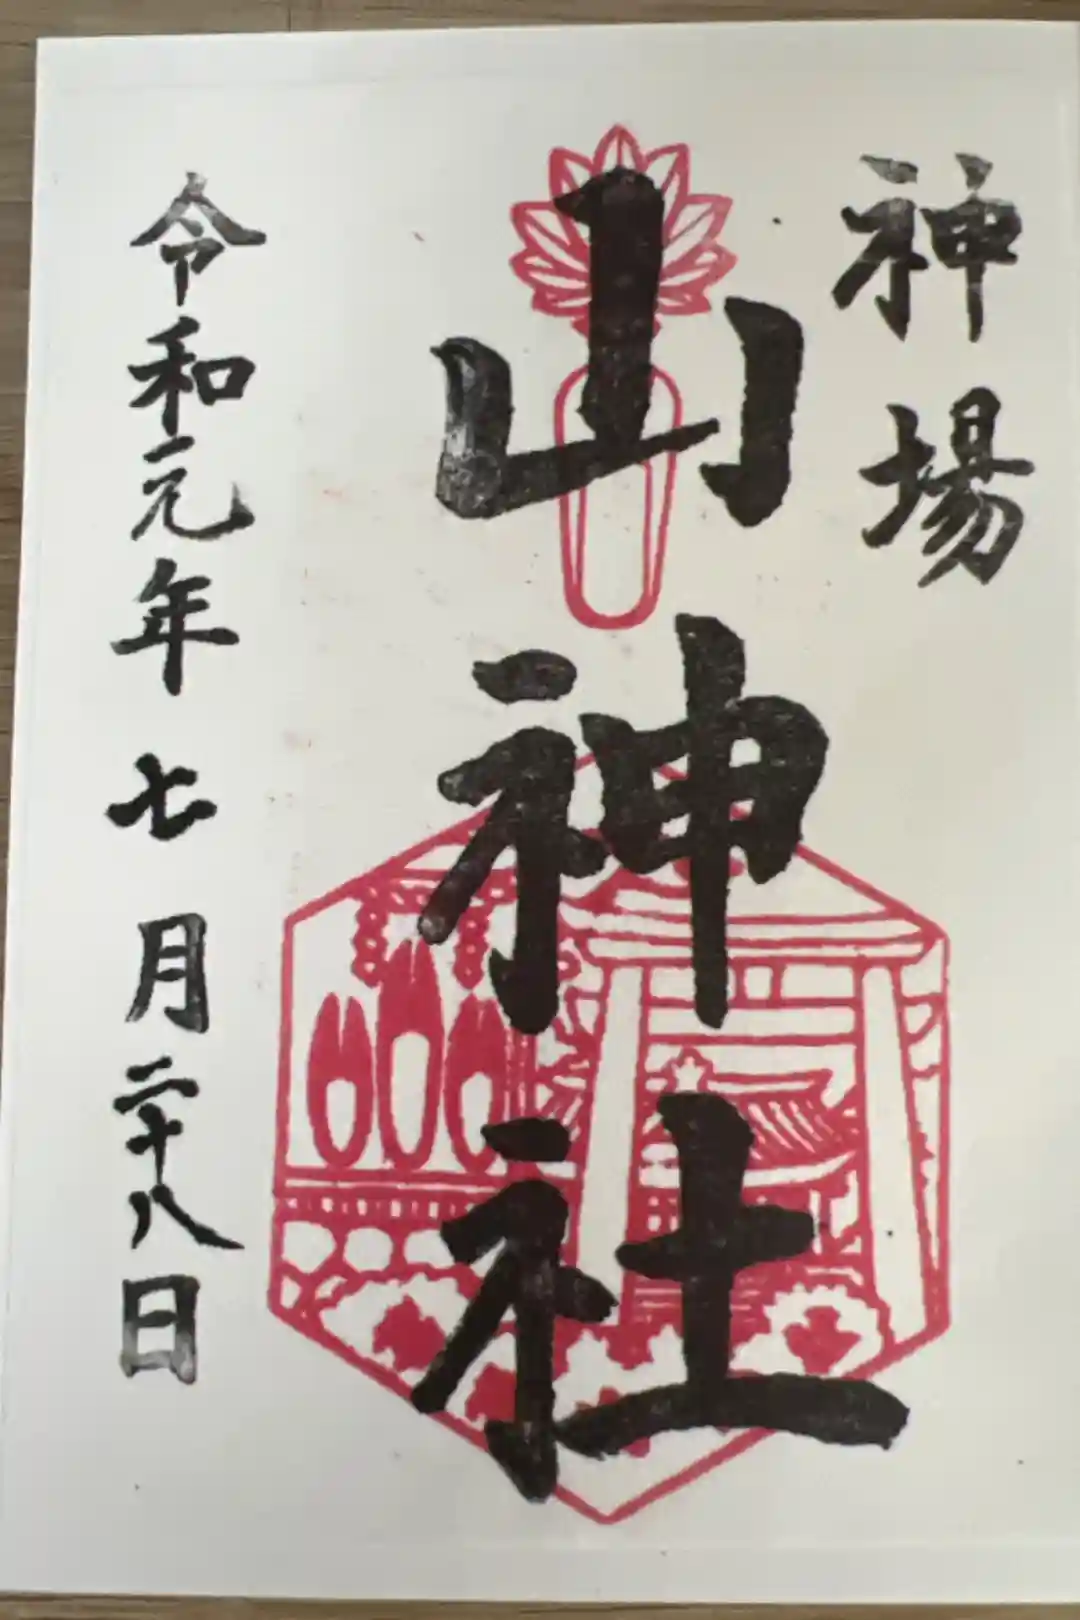 神場
山神社
令和元年七月二十八日